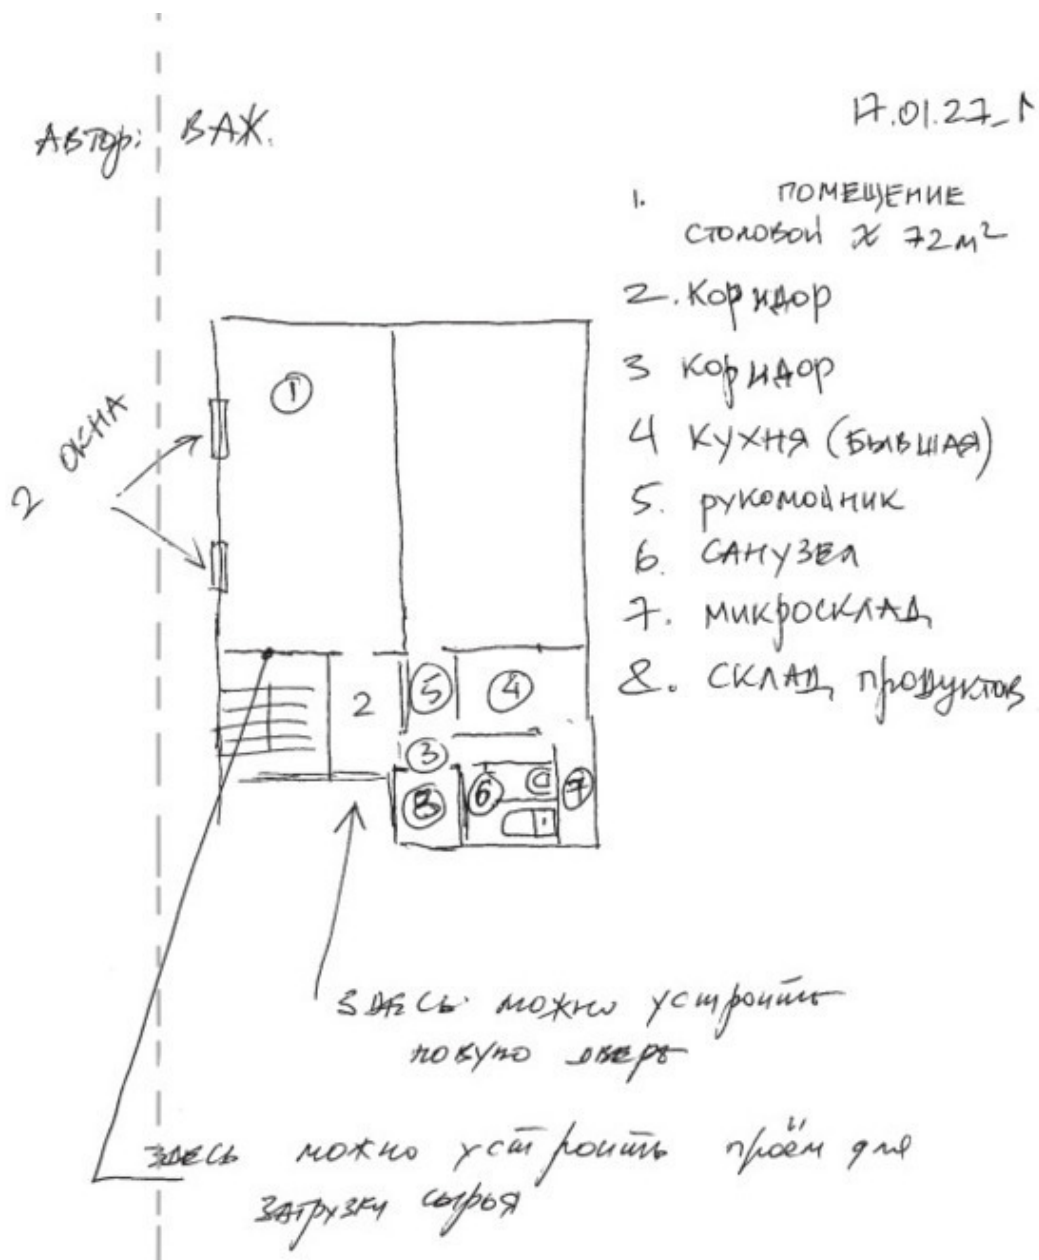 Автор: ВАЖ.
17.01.27_1
1. ПОМЕЩЕНИЕ
СТОЛОВОЙ ≈ 72м²
2. Коридор
3 коридор
4 КУХНЯ (БЫВШАЯ)
5. рукомойник
6. САНУЗЕЛ
7. микросклад
8. СКЛАД продуктов
2 ОКНА
1
5
4
2
3
8
6
7
ЗДЕСЬ можно устроить
новую дверь
ЗДЕСЬ можно устроить проём для
ЗАГРУЗКИ сырья